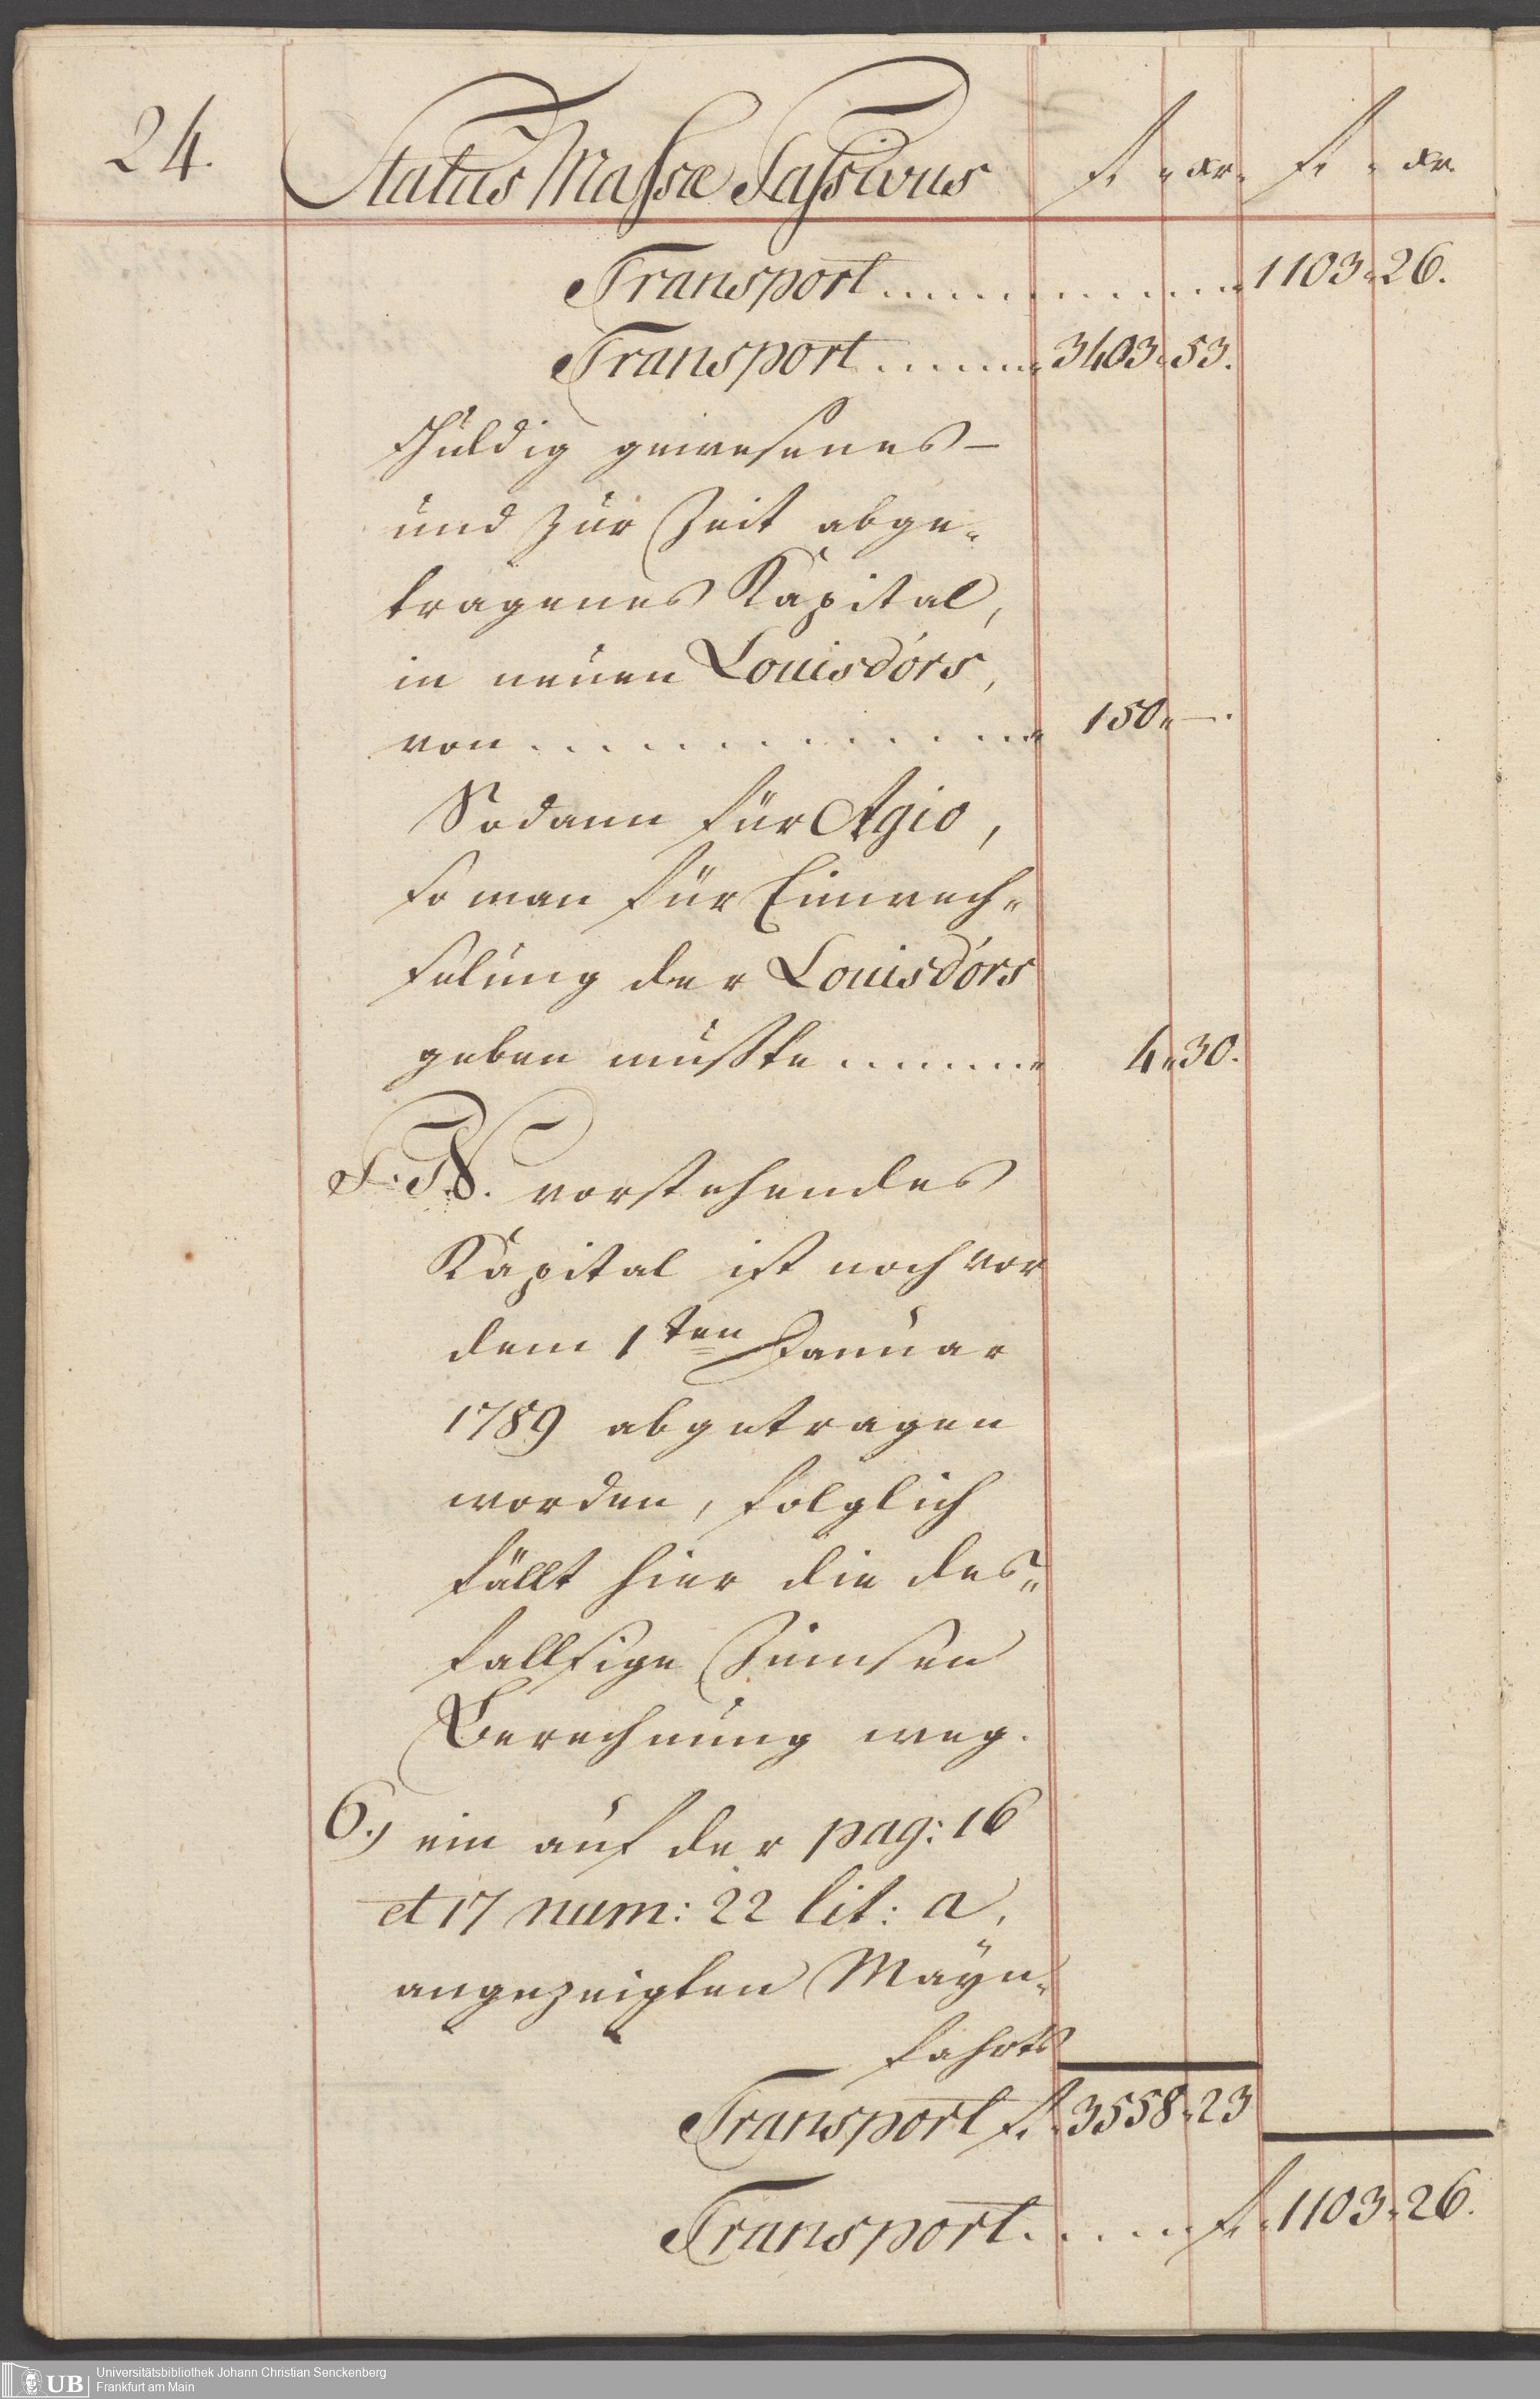 24.
Status Massæ Passivus
fl. xr. fl. xr.
Transport . . . . . . . . . . 1103 " 26.
Transport . . . . . . " 3403 " 53.
schuldig gewesenes -
und zur Zeit abge-
tragenes Kapital,
in neuen Louisd'ors,
von . . . . . . . . . . . . " 150 " —.
Sodann für Agio,
so man für Einwech-
selung der Louisd'ors
geben mußte . . . . . . " 4 " 30.
vorstehendes
Kapital ist noch vor
dem 1ten Januar
1789 abgetragen
worden, folglich
fällt hier die des-
fallsige Zinnsen
Berechnung weg.
6.) ein auf der pag: 16
et 17 num: 22 lit: a,
angezeigten Mayn-
fahrts
Transport fl. 3558 " 23
Transport . . . . . fl. 1103 " 26.
UB
Universitätsbibliothek Johann Christian Senckenberg
Frankfurt am Main